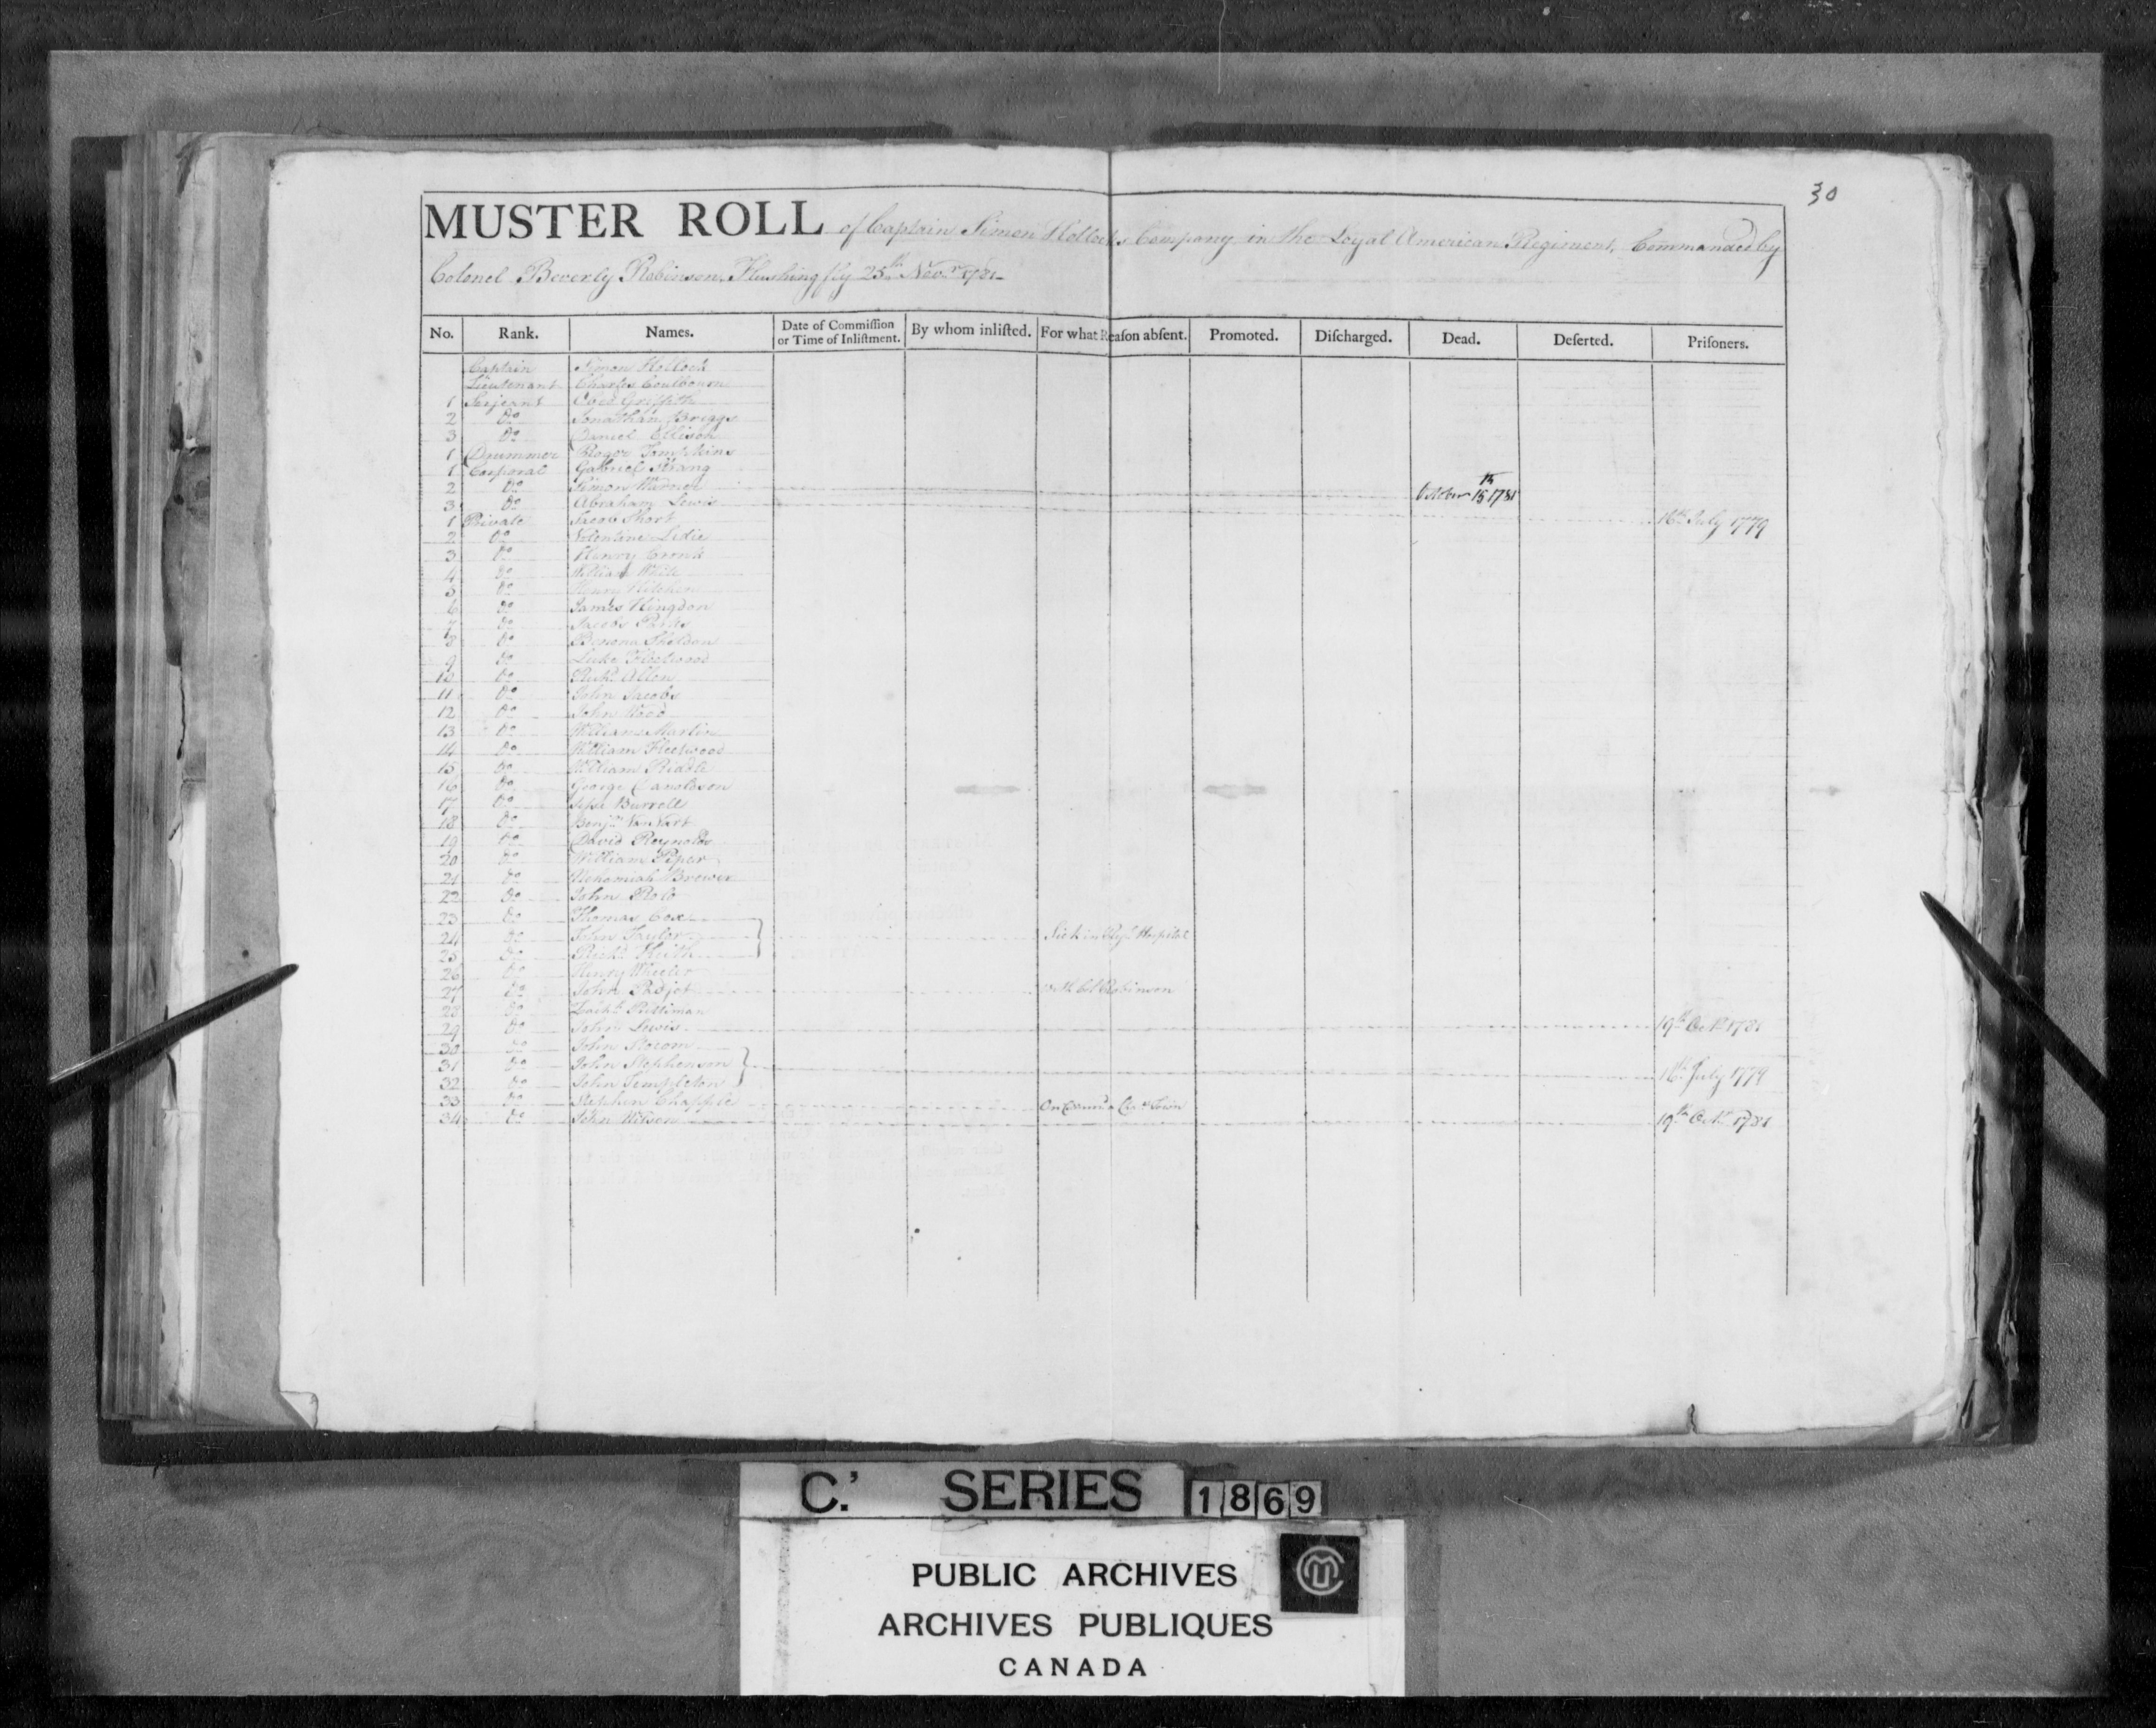 30
MUSTER ROLL of Captain Simon Kollock's Company in the Loyal American Regiment, Commanded by
Colonel Beverly Robinson, Flushing fly 25th Novr 1781
No. Rank. Names. Date of Commiſſion or Time of Inliſtment. By whom inliſted. For what Reaſon abſent. Promoted. Diſcharged. Dead. Deſerted. Priſoners.
Captain Simon Kollock
Lieutenant Charles Coulbourn
1 Serjeant Griffith
2 Do Jonathan Briggs
3 Do Daniel Ellison
1 Drummer Roger Tompkins
1 Corporal Gabriel Strang
2 Do Simon Warner October 15th 1781
3 Do Abraham Lewis
1 Private Jacob Short 16th July 1779
2 Do Valentine Lidie
3 Do Henry Cronk
4 Do William White
5 Do Henry Kitchen
6 Do James Kingdon
7 Do Jacob
8 Do Sheldon
9 Do Luke Fleetwood
10 Do Richd Allen
11 Do John Jacobs
12 Do John Wood
13 Do William Martin
14 Do William Fleetwood
15 Do William Riddle
16 Do George
17 Do Burrell
18 Do Benjn Van Nart
19 Do David Reynolds
20 Do William Piper
21 Do Nehemiah Brewer
22 Do John Rolo
23 Do Thomas Cox
24 Do John Taylor Sick in Regl Hospital
25 Do Richd Keith
26 Do Henry Wheeler
27 Do John Padjet with Cl Robinson
28 Do Zachh Prettiman
29 Do John Lewis 19th Octr 1781
30 Do John Slocom
31 Do John Stephenson 16th July 1779
32 Do John Templeton
33 Do Stephen Chapple On Commd
34 Do John Wilson 19th Octr 1781
C.' SERIES 1869
PUBLIC ARCHIVES
ARCHIVES PUBLIQUES
CANADA